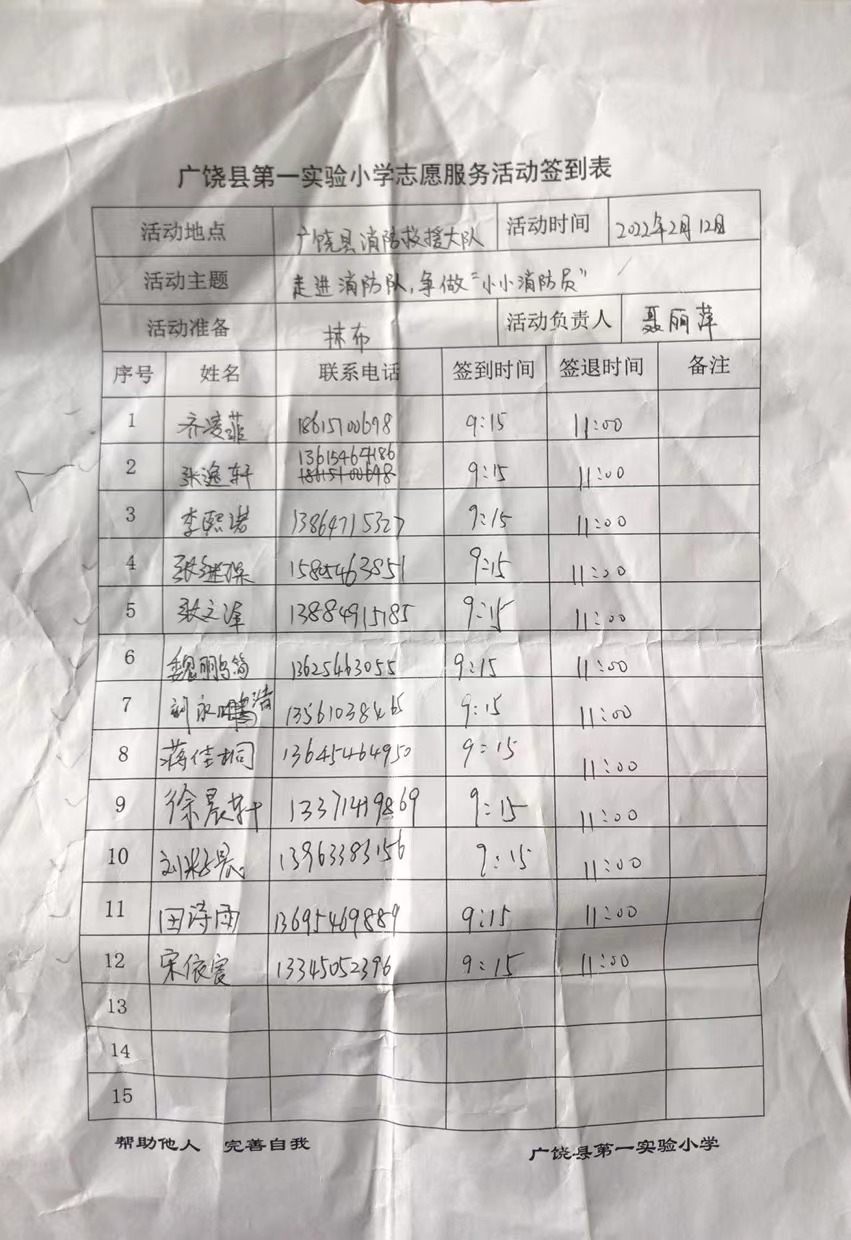 广饶县第一实验小学志愿服务活动签到表
活动地点 广饶县消防救援大队 活动时间 2022年2月12日
活动主题 走进消防队,争做“小小消防员”
活动准备 抹布 活动负责人 聂丽萍
序号 姓名 联系电话 签到时间 签退时间 备注
1 齐凌菲 18615700698 9:15 11:00
2 张逸轩 13615464186 9:15 11:00
3 李熙诺 13864715327 9:15 11:00
4 15805463851 9:15 11:00
5 张文泽 13884915185 9:15 11:00
6 魏鹏简 13625463055 9:15 11:00
7 刘永浩 13561038465 9:15 11:00
8 蒋佳桐 13645464950 9:15 11:00
9 徐晨轩 13371419869 9:15 11:00
10 13963383156 9:15 11:00
11 田诗雨 13695469889 9:15 11:00
12 宋依宸 13345052396 9:15 11:00
13
14
15
帮助他人 完善自我 广饶县第一实验小学